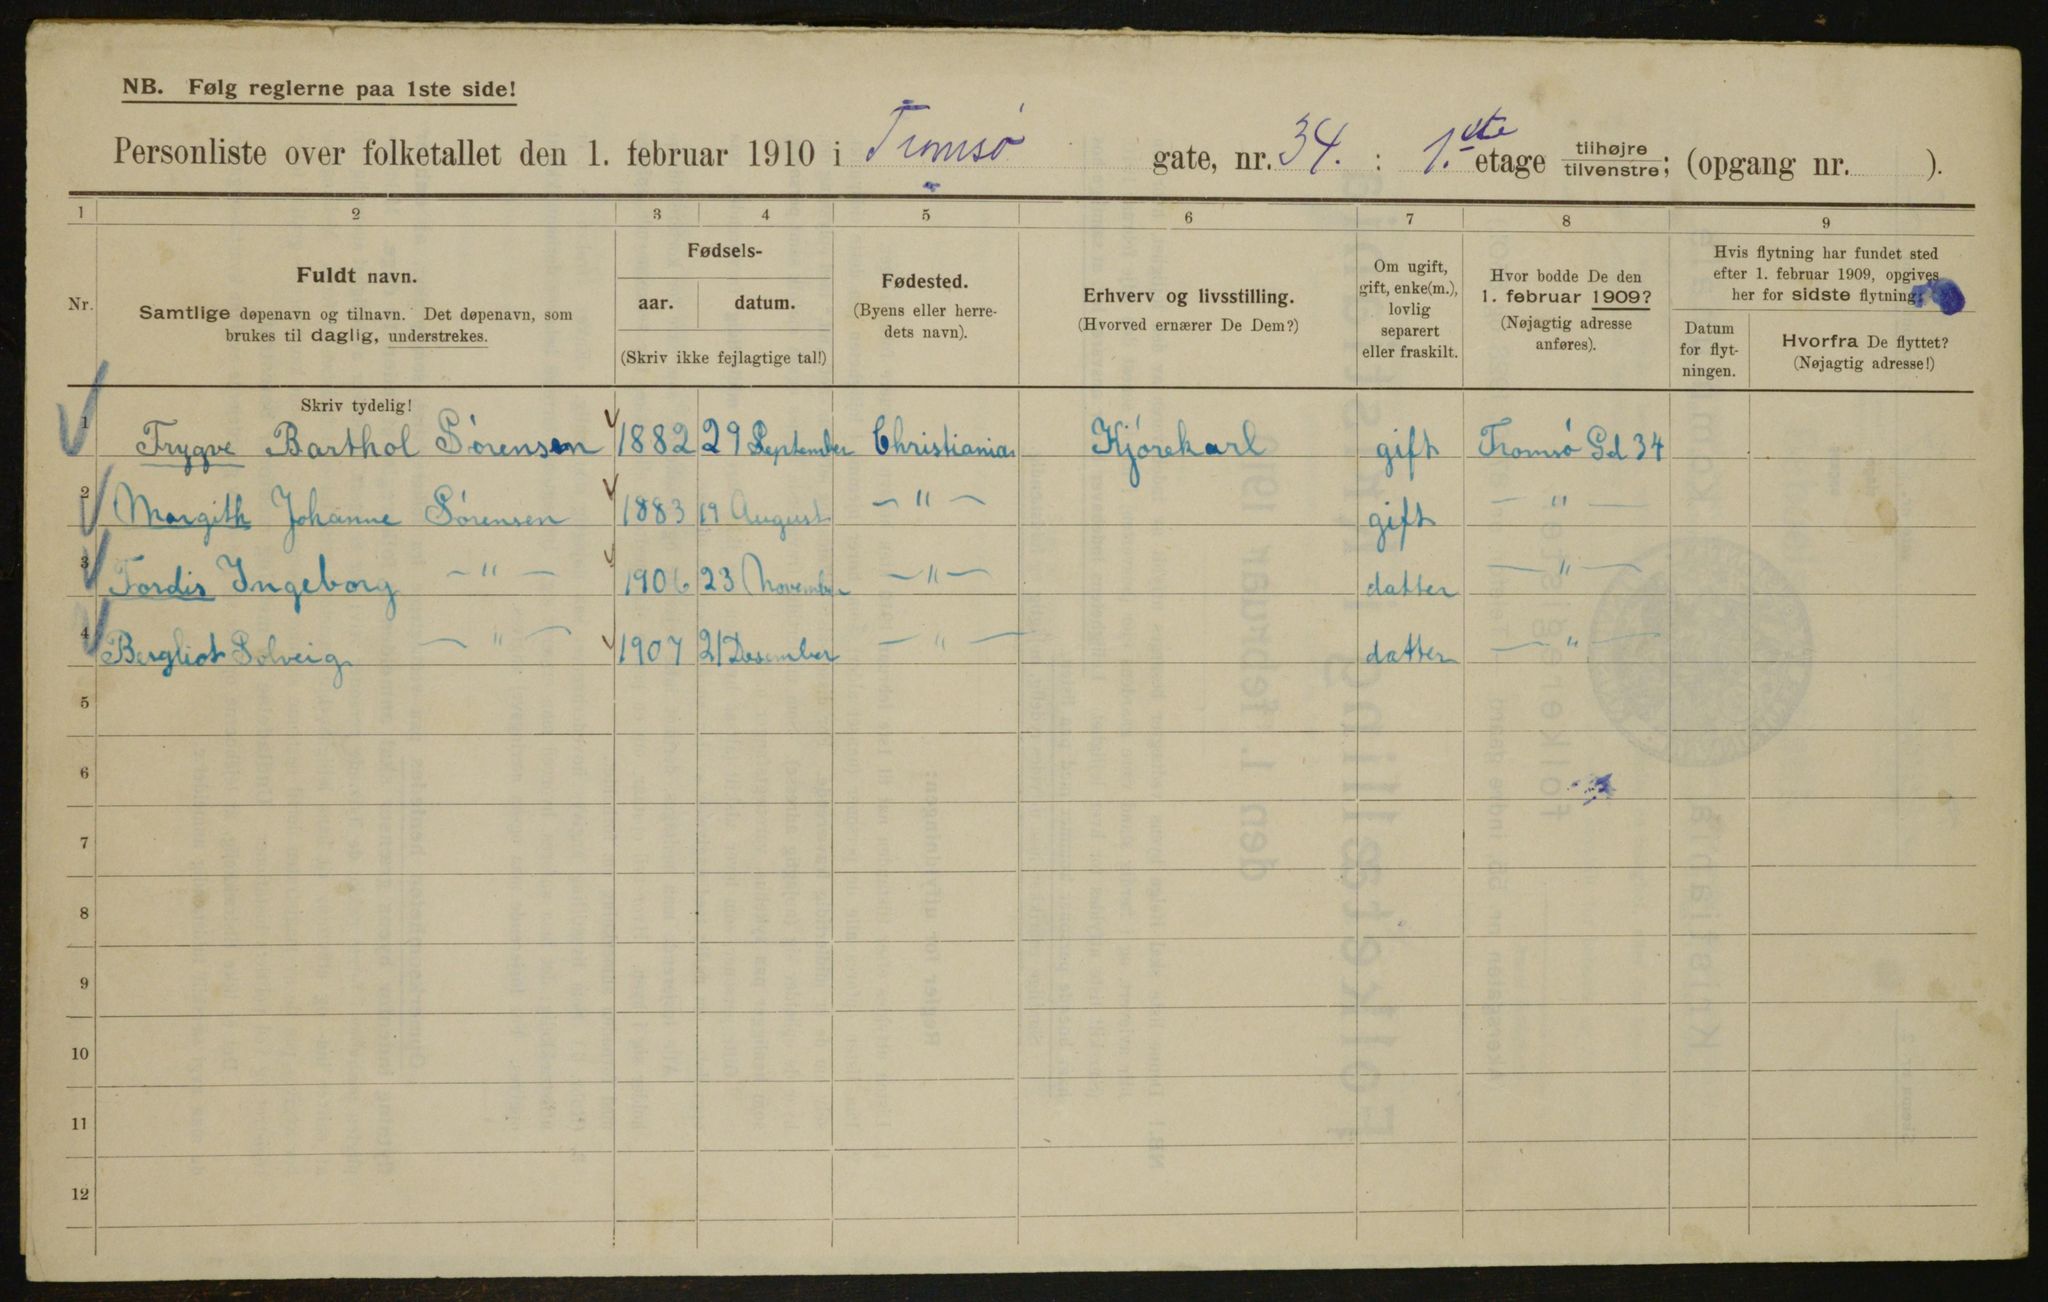 NB. Følg reglerne paa 1ste side!
Personliste over folketallet den 1. februar 1910 i Tromsø gate, nr. 34. : 1.ste etage tilhøjre tilvenstre; (opgang nr. ).
1 2 3 4 5 6 7 8 9
Nr.
Fuldt navn.
Samtlige døpenavn og tilnavn. Det døpenavn, som
brukes til daglig, understrekes.
Fødsels-
aar. datum.
(Skriv ikke fejlagtige tal!)
Fødested.
(Byens eller herre-
dets navn).
Erhverv og livsstilling.
(Hvorved ernærer De Dem?)
Om ugift,
gift, enke(m.),
lovlig
separert
eller fraskilt.
Hvor bodde De den
1. februar 1909?
(Nøjagtig adresse
anføres).
Hvis flytning har fundet sted
efter 1. februar 1909, opgives
her for sidste flytning:
Datum
for flyt-
ningen.
Hvorfra De flyttet?
(Nøjagtig adresse!)
Skriv tydelig!
1 Trygve Barthol Sørensen 1882 29 September Christiania Kjørekarl gift Tromsø Gd 34
2 Margith Johanne Sørensen 1883 19 August — " — gift — " —
3 Tordis Ingeborg — " — 1906 23 November — " — datter — " —
4 Bergliot Solveig — " — 1907 21 Desember — " — datter — " —
5
6
7
8
9
10
11
12